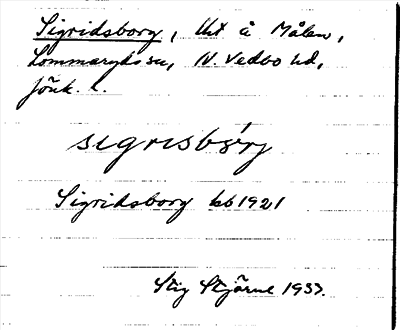 Sigridsborg, lht å Målen,
Lommaryds sn, N. Vedbo hd,
Jönk. l.
sigrisbȯrj
Sigridsborg kb 1921
Stig Stjärne 1937.